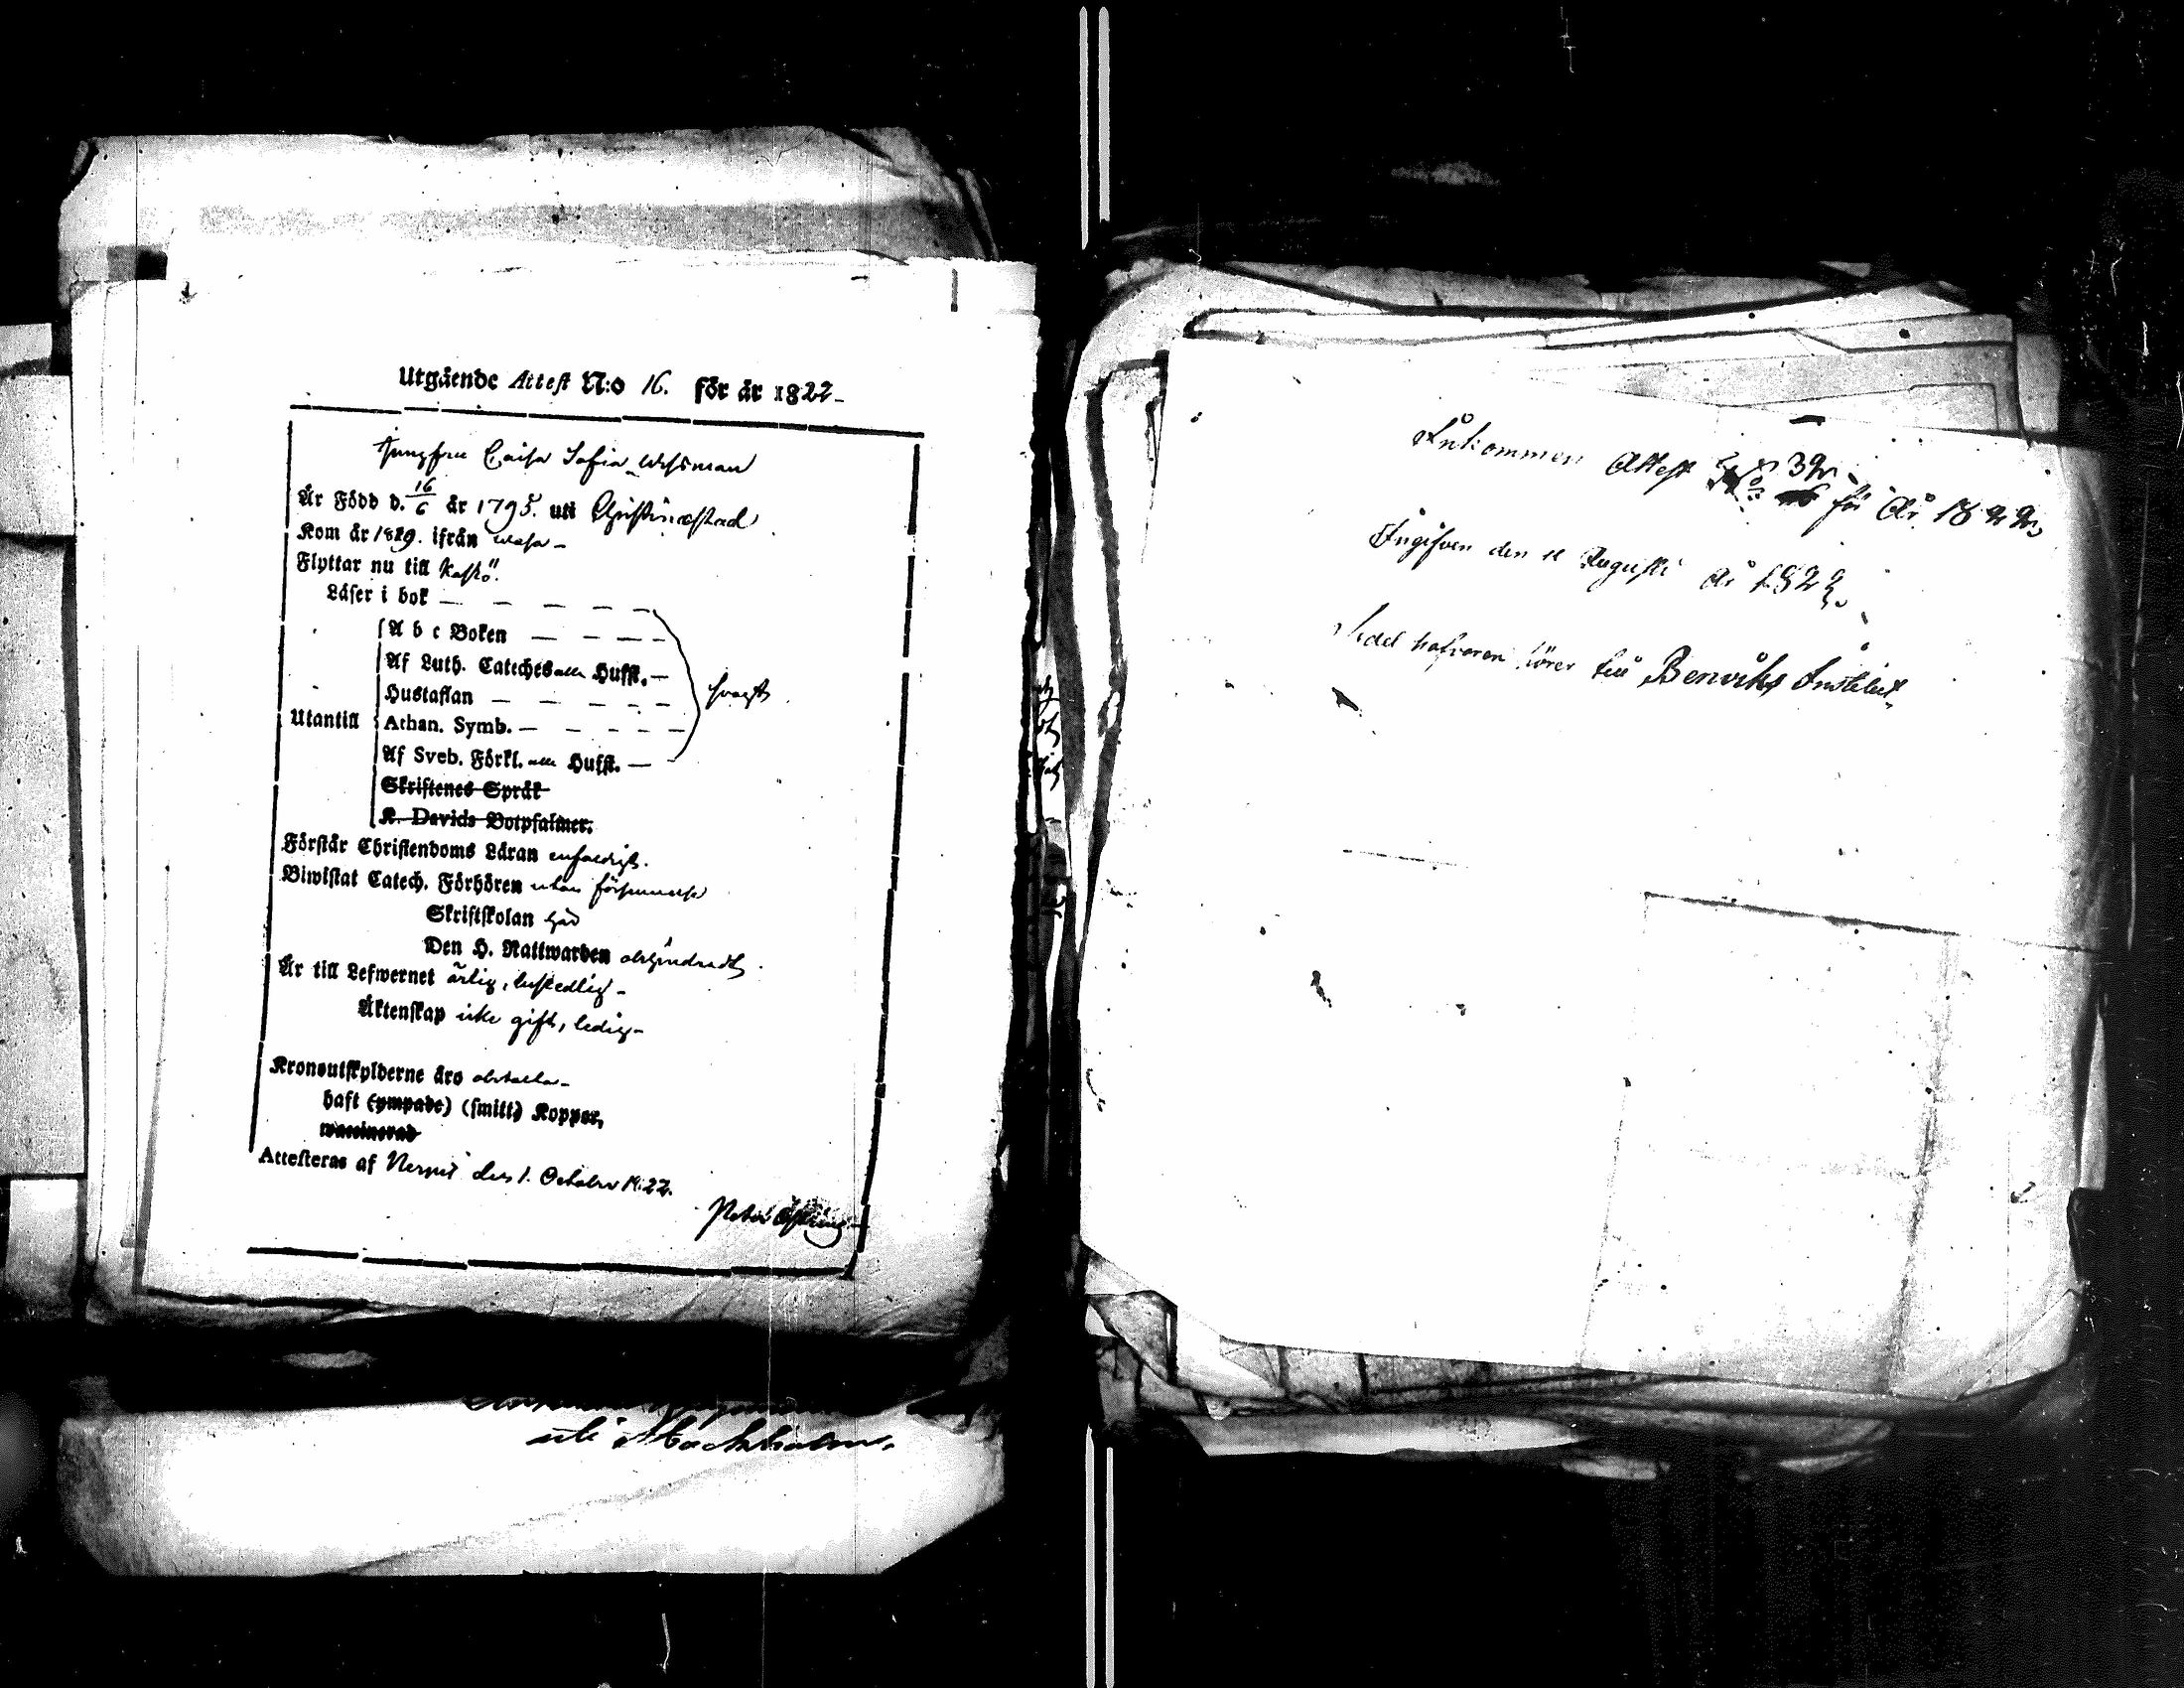 Utgående Attest N:o 16. för år 1822
Jungfru Caisa Sofia Wessman
Är Född d. 16/6 år 1795. uti Christinæstad
Kom år 1819. ifrån Wasa
Flyttar nu till Kaskö.
Läser i bok
A b c Boken
Af Luth. Cateches alla Hufst.
Hustaflan
Utantill
Athan. Symb.
Af Sveb. Förkl. alla Hufst.
svagt
Skriftenes Språk
K. Davids Botpsalmer.
Förstår Christendoms Läran enfaldigt.
Biwistat Catech. Förhören utan försummelse
Skriftskolan
Den H. Nattwarden obehindradt
Är till Lefwernet ärlig,
Äktenskap icke gift, ledig
Kronoutskylderne äro betalta
haft (ympade) (smitt) Koppor,
waccinerad
Attesteras af Nerpes den 1. October 1822.
Peter
uti Stockholm.
Inkommen Attest N:o 32 för År 1822
Ingifven den 11 Augusti År 1822
Sedel hafvaren hörer till Benviks Institut.